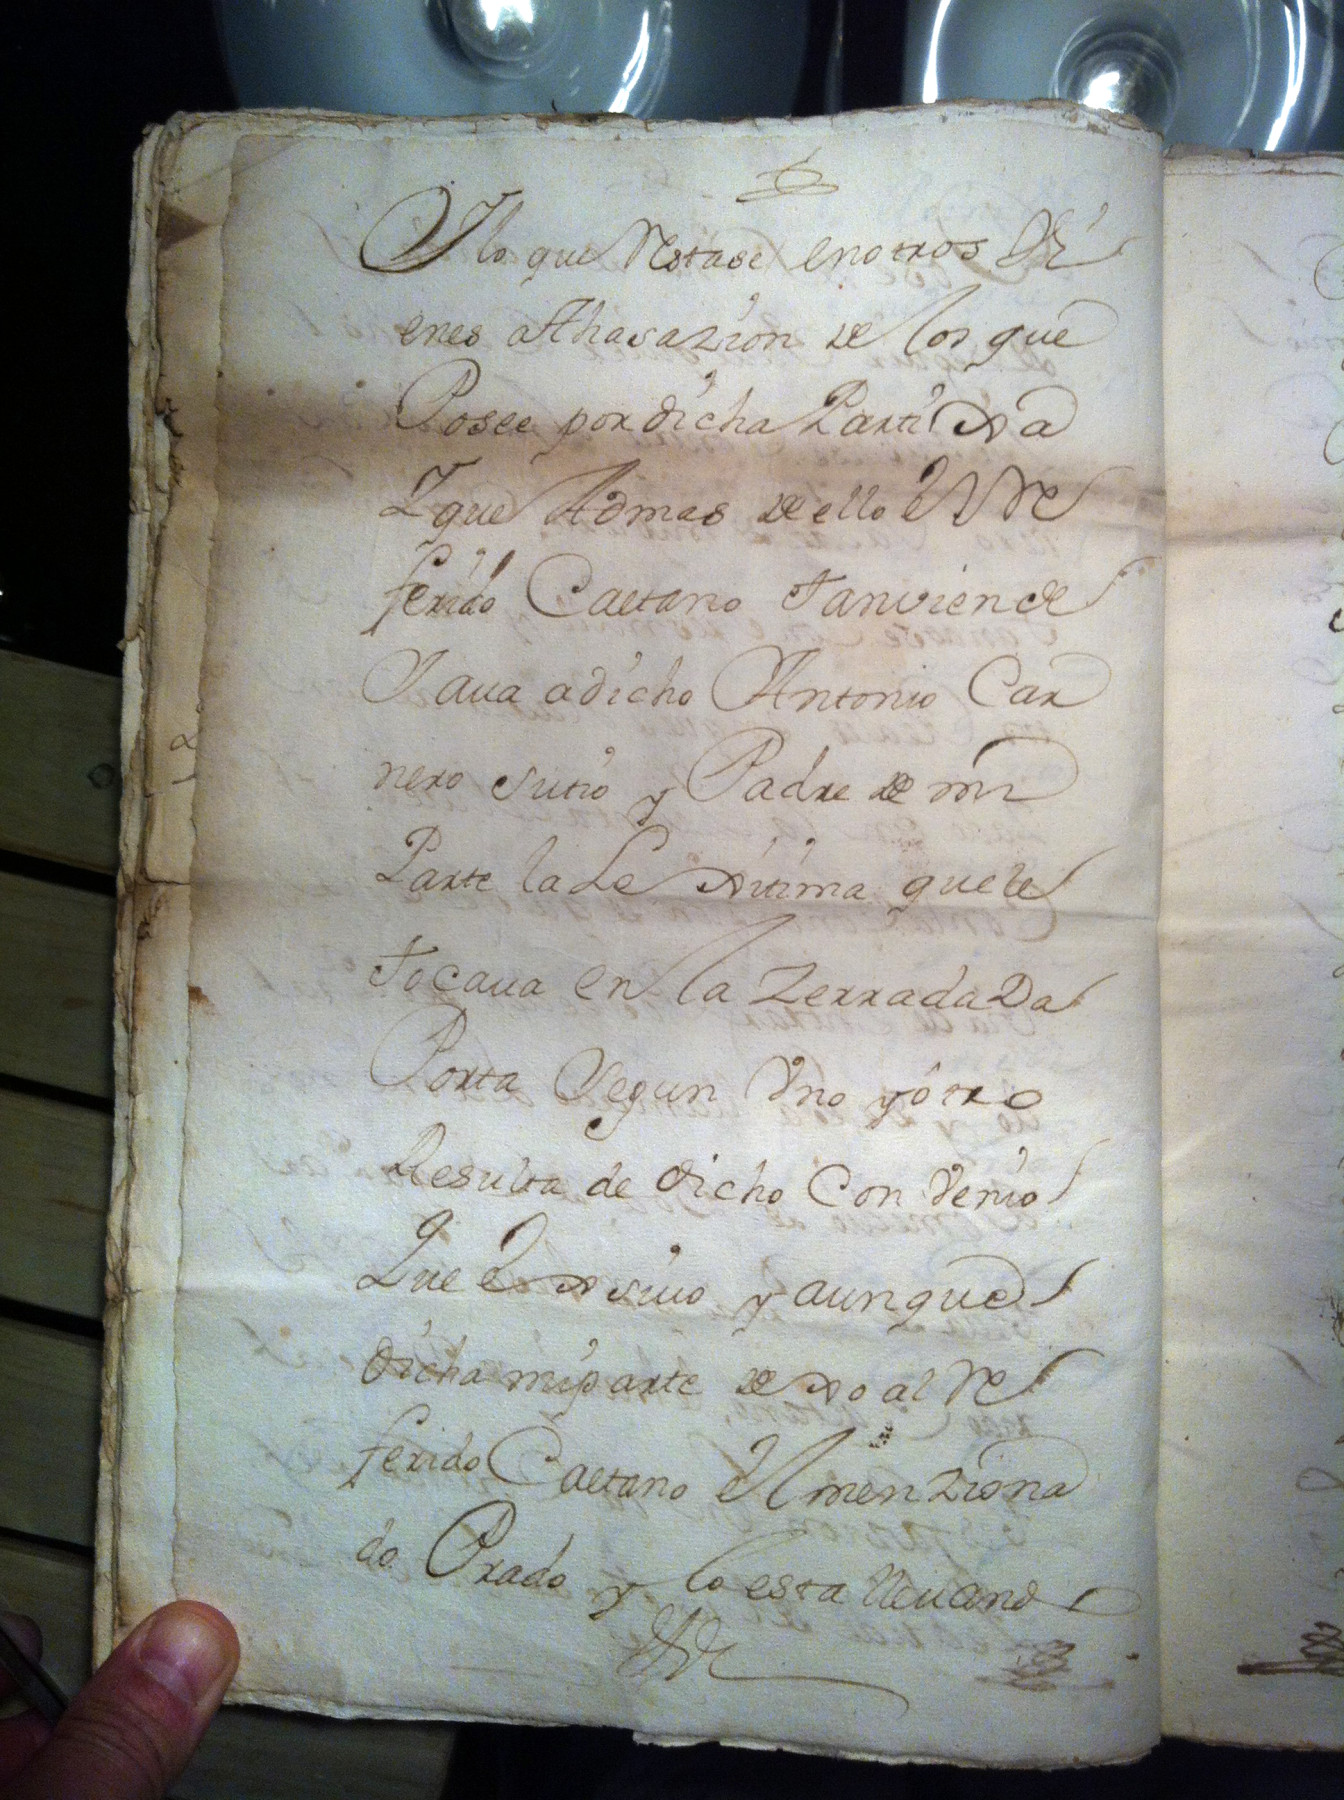 Ylo que Restase enotros Vi
enes athasazion de los que
Posee por dicha Partixa
Yque Ademas de ello el Re
ferido Caetano tanviende
Xaua adicho Antonio Car
nero sutio y Padre de mi
Parte la Lexitima quele
tocaua en la Zerrada Da
Porta Segun Vno yotro
Resulta de dicho Con Venio
Que Exsiuo y aunque
dicha miparte dexo al Re
ferido Caetano el menziona
do Prado y lo esta lleuando